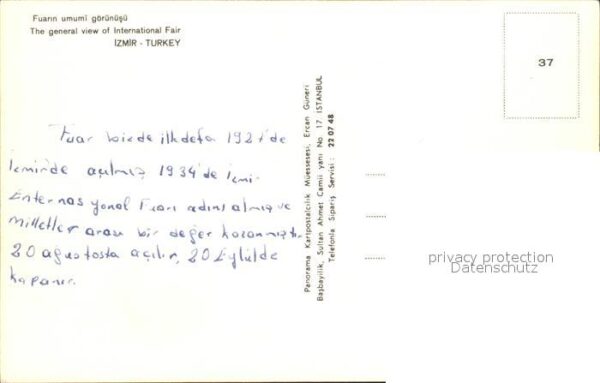 Fuarın umumî görünüşü
The general view of International Fair
İZMİR - TURKEY
37
Fuar bizde ilk defa 1927'de
İzmir'de açılmış 1934'de İzmi-
Enternasyonal Fuarı adını almış ve
Milletler arası bir değer kazanmıştı.
20 ağustosta açılır, 20 Eylülde
kapanır.
Panorama Kartpostalcılık Müessesesi, Ercan Güneri
Başbayilik, Sultan Ahmet Camii yanı No 17 İSTANBUL
Telefonla Sipariş Servisi : 22 07 48
privacy protection
Datenschutz